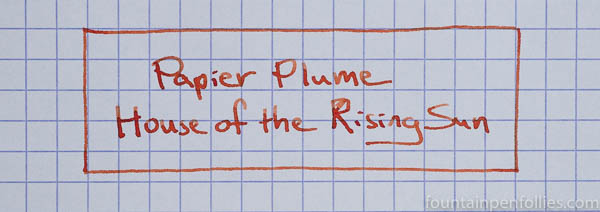 Papier Plume
House of the Rising Sun
fountainpenfollies.com